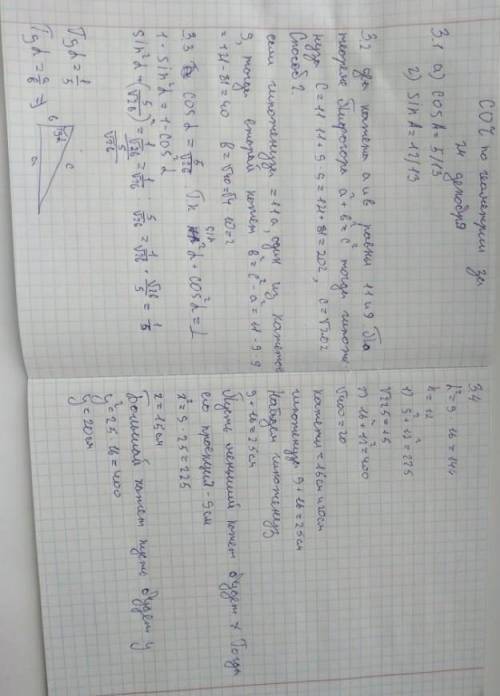 СОч по геометрии за
24 декабря
3.1 а) cosα = 5/13
2) sinα = 12/13
3.2 два катета а и в равны 11 и 9 По
теореме Пифагора a² + b² = c² тогда гипоте
нуза c = 11·11 + 9·9 = 121 + 81 = 202, c = √202
Способ 2.
если гипотенуза = 11 а, один из катетов
9, тогда второй катет b² = c² - a² = 11 - 9·9
= 121 - 81 = 40
3.3 cosα = 5/√26 Тк sin²α + cos²α = 1
1 - sin²α = 1 - cos²α
tgα = 1/5
b
c
a
3.4
h² = 9·16 = 144
h = 12
1) 9² + 12² = 225
√225 = 15
2) 16² + 12² = 400
√400 = 20
катеты = 15см и 20см
гипотенуза 9 + 16 = 25см
Найдем гипотенузу
9 + 16 = 25см
Пусть меньший катет будет x Тогда
его проекция - 9см
x² = 9·25 = 225
x = 15см
Больший катет пусть будет y
y² = 25·16 = 400
y = 20см